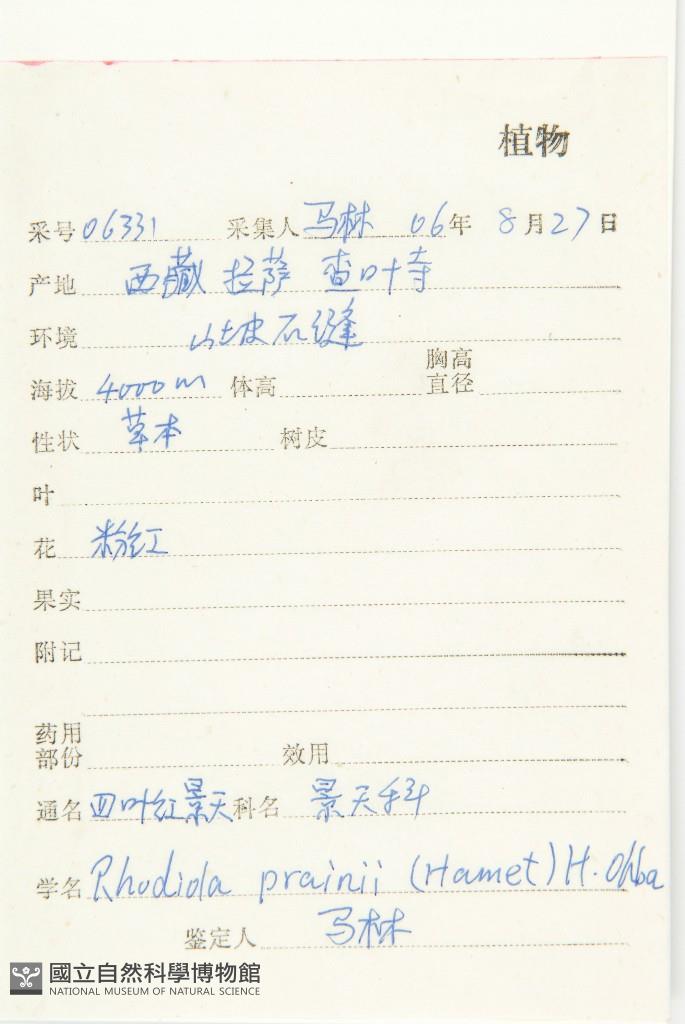 植物
采号 06331 采集人 马林 06年 8月27日
产地 西藏 拉萨 查叶寺
环境 山坡石缝
海拔 4000m 体高 胸高直径
性状 草本 树皮
叶
花 粉红
果实
附记
药用部份 效用
通名 四叶红景天 科名 景天科
学名 Rhodiola prainii (Hamet) H. Ohba
鉴定人 马林
國立自然科學博物館
NATIONAL MUSEUM OF NATURAL SCIENCE